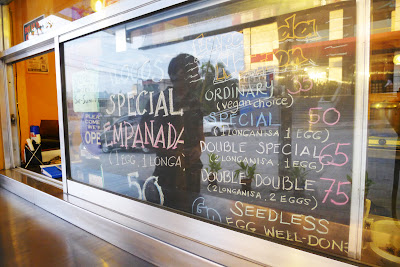 SPECIAL
EMPANADA
(1 EGG, 1 LONGA.)
50
ORDINARY
(vegan choice) 35
SPECIAL 50
(1 LONGANISA 1 EGG)
DOUBLE SPECIAL 65
(2 LONGANISA, 1 EGG)
DOUBLE DOUBLE 75
(2 LONGANISA, 2 EGGS)
SEEDLESS
EGG WELL-DONE